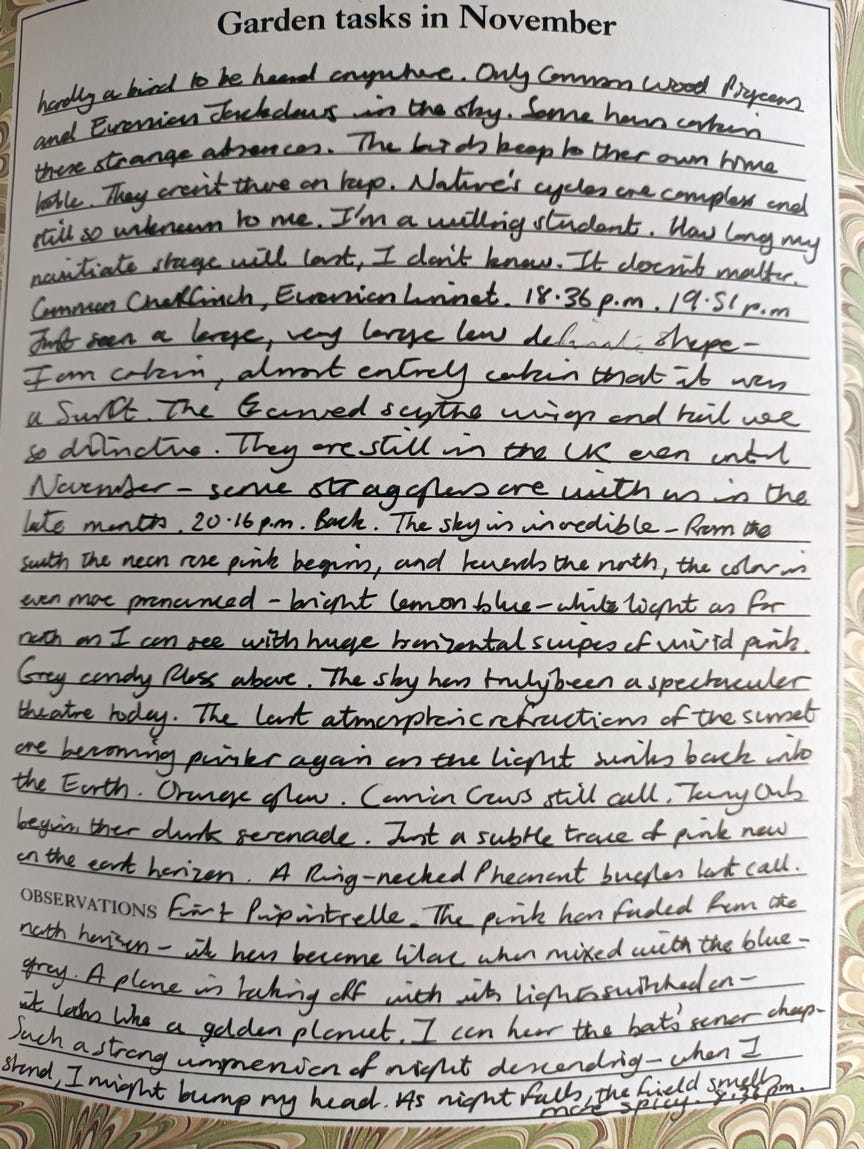 Garden tasks in November
hardly a bird to be heard anywhere. Only Common Wood Pigeons
and Eurasian Jackdaws in the sky. Some hours contain
these strange absences. The birds keep to their own time
table. They aren't there on tap. Nature's cycles are complex and
still so unknown to me. I'm a willing student. How long my
novitiate stage will last, I don't know. It doesn't matter.
Common Chaffinch, Eurasian Linnet. 18.36 p.m. 19.51 p.m
Just seen a large, very large low shape -
I am certain, almost entirely certain that it was
a Swift. The curved scythe wings and tail were
so distinctive. They are still in the UK even until
November - some stragglers are with us in the
late months. 20.16 p.m. Back. The sky is incredible - from the
south the neon rose pink begins, and towards the north, the color is
even more pronounced - bright lemon blue-white light as far
north as I can see with huge horizontal swipes of vivid pink.
Grey candy floss above. The sky has truly been a spectacular
theatre today. The last atmospheric refractions of the sunset
are becoming pinker again as the light sinks back into
the Earth. Orange glow. Carrion Crows still call. Tawny Owls
begin their dusk serenade. Just a subtle trace of pink now
on the east horizon. A Ring-necked Pheasant bugles last call.
OBSERVATIONS First Pipistrelle. The pink has faded from the
north horizon - it has become lilac when mixed with the blue-
grey. A plane is taking off with its lights switched on -
it looks like a golden planet. I can hear the bats' sonar cheep-
Such a strong impression of night descending - when I
stand, I might bump my head. As night falls, the field smells
more spicy. 8.38 pm.